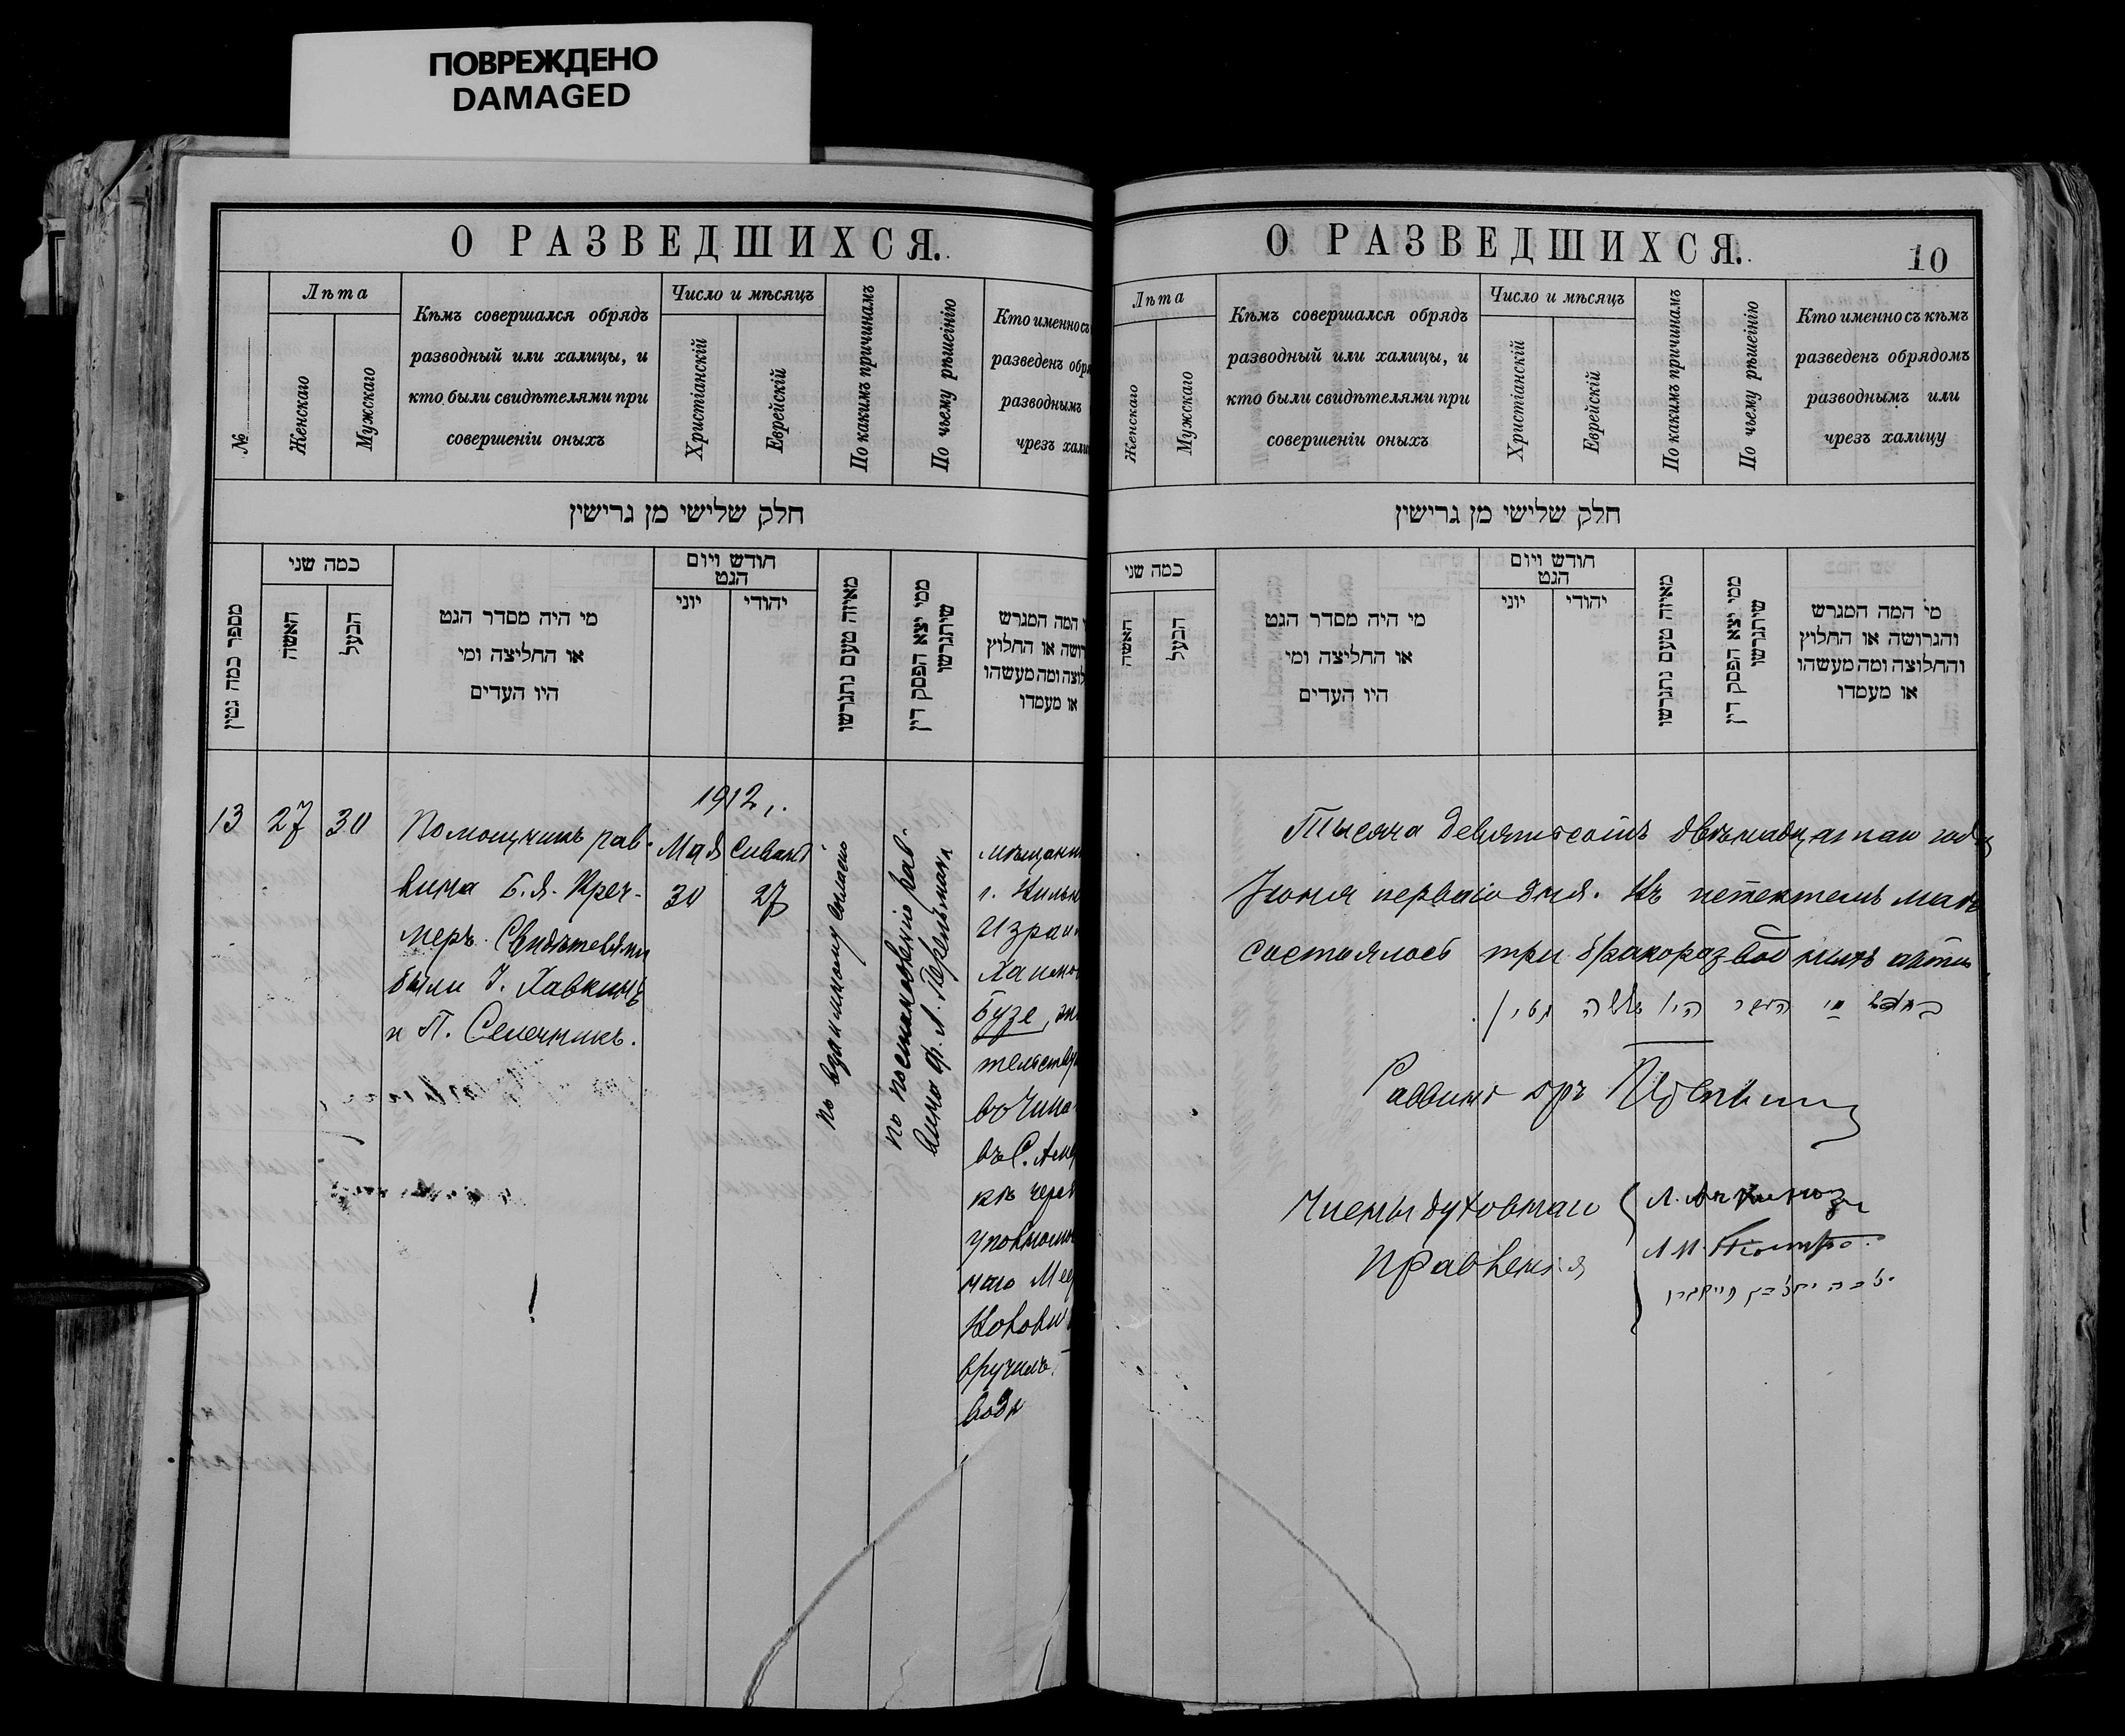 ПОВРЕЖДЕНО
DAMAGED
О РАЗВЕДШИХСЯ.
№
Лѣта
Женскаго
Мужскаго
Кѣмъ совершался обрядъ
разводный или халицы, и
кто были свидѣтелями при
совершеніи оныхъ
Число и мѣсяцъ
Христіанскій
Еврейскій
По какимъ причинамъ
По чьему рѣшенію
Кто именно съ
разведенъ обря
разводнымъ
чрезъ хали
חלק שלישי מן גרישין
מספר כמה גטין
כמה שני
האשה
הבעל
מי היה מסדר הגט
או החליצה ומי
היו העדים
חודש ויום
הגט
יוני
יהודי
מאיזה טעם נתגרשו
ממי יצא הפסק דין
שיתגרשו
המה המגרש
רושה או החלוץ
לוצה ומה מעשהו
או מעמדו
13
27
30
Помощникъ рав-
вина Б. Я. Креч-
меръ. Свидѣтелями
были І. Хавкинъ
и П. Селечникъ.
1912 г.
Мая Сивана
30 27
по взаимному согласію
по постановленію рав-
вина ф. Л. Перельмана
мѣщанин
г.
Изра
Хаимо
Бузе,
тельству
въ Чика
въ С. Аме
кѣ через
уполномо
наго Меер
вручилъ
О РАЗВЕДШИХСЯ.
10
Лѣта
Женскаго
Мужскаго
Кѣмъ совершался обрядъ
разводный или халицы, и
кто были свидѣтелями при
совершеніи оныхъ
Число и мѣсяцъ
Христіанскій
Еврейскій
По какимъ причинамъ
По чьему рѣшенію
Кто именно съ кѣмъ
разведенъ обрядомъ
разводнымъ или
чрезъ халицу
חלק שלישי מן גרישין
כמה שני
האשה
הבעל
מי היה מסדר הגט
או החליצה ומי
היו העדים
חודש ויום
הגט
יוני
יהודי
מאיזה טעם נתגרשו
ממי יצא הפסק דין
שיתגרשו
מי המה המגרש
והגרושה או החלוץ
והחלוצה ומה מעשהו
או מעמדו
Тысяча девятьсотъ двѣнадцатаго года
Іюня перваго дня. Въ истекшемъ маѣ
состоялось три бракоразводныхъ акта.
היו שלשה גטין
Раввинъ д-ръ
Члены духовнаго
правленія